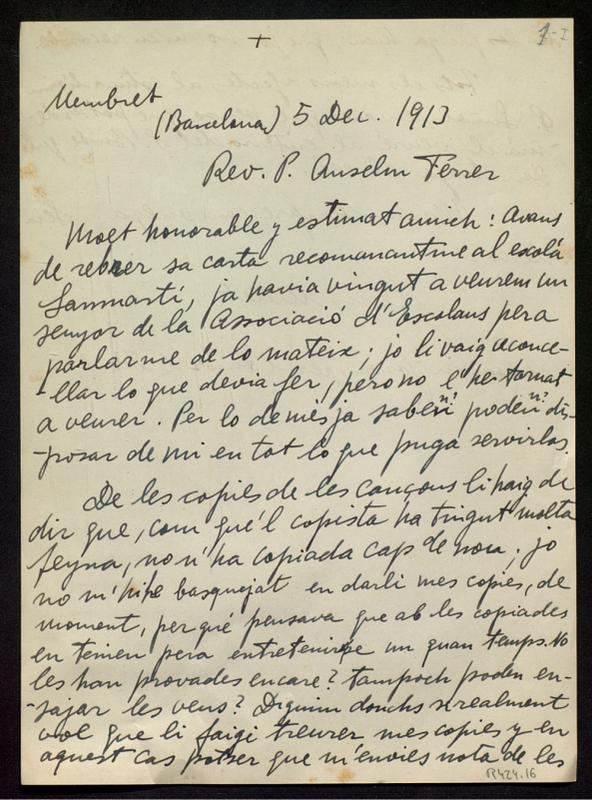 +
1-I
Membret
(Barcelona) 5 Dec. 1913
Rev. P. Anselm Ferrer
Molt honorable y estimat amich: Avans
de rebrer sa carta recomanantme al escolà
Sanmartí, ja havia vingut a veurem un
senyor de la Associació d'Escolans pera
parlarme de lo mateix; jo li vaig aconce-
-llar lo que devia fer, pero no l'he tornat
a veurer. Per lo demés ja saben poden dis-
-posar de mi en tot lo que puga servirlos.
De les copies de les cançons li haig de
dir que, com qué'l copista ha tingut molta
feyna, no n'ha copiada cap de nou; jo
no m'hi he basquejat en darli mes copies, de
moment, per qué pensava que ab les copiades
en tenien pera entretenirse un quan temps. No
les han provades encare? tampoch poden en-
-sajar les veus? Diguim donchs si realment
vol que li faigi treurer mes copies y en
aquest cas potser que m'envies nota de les
R424.16